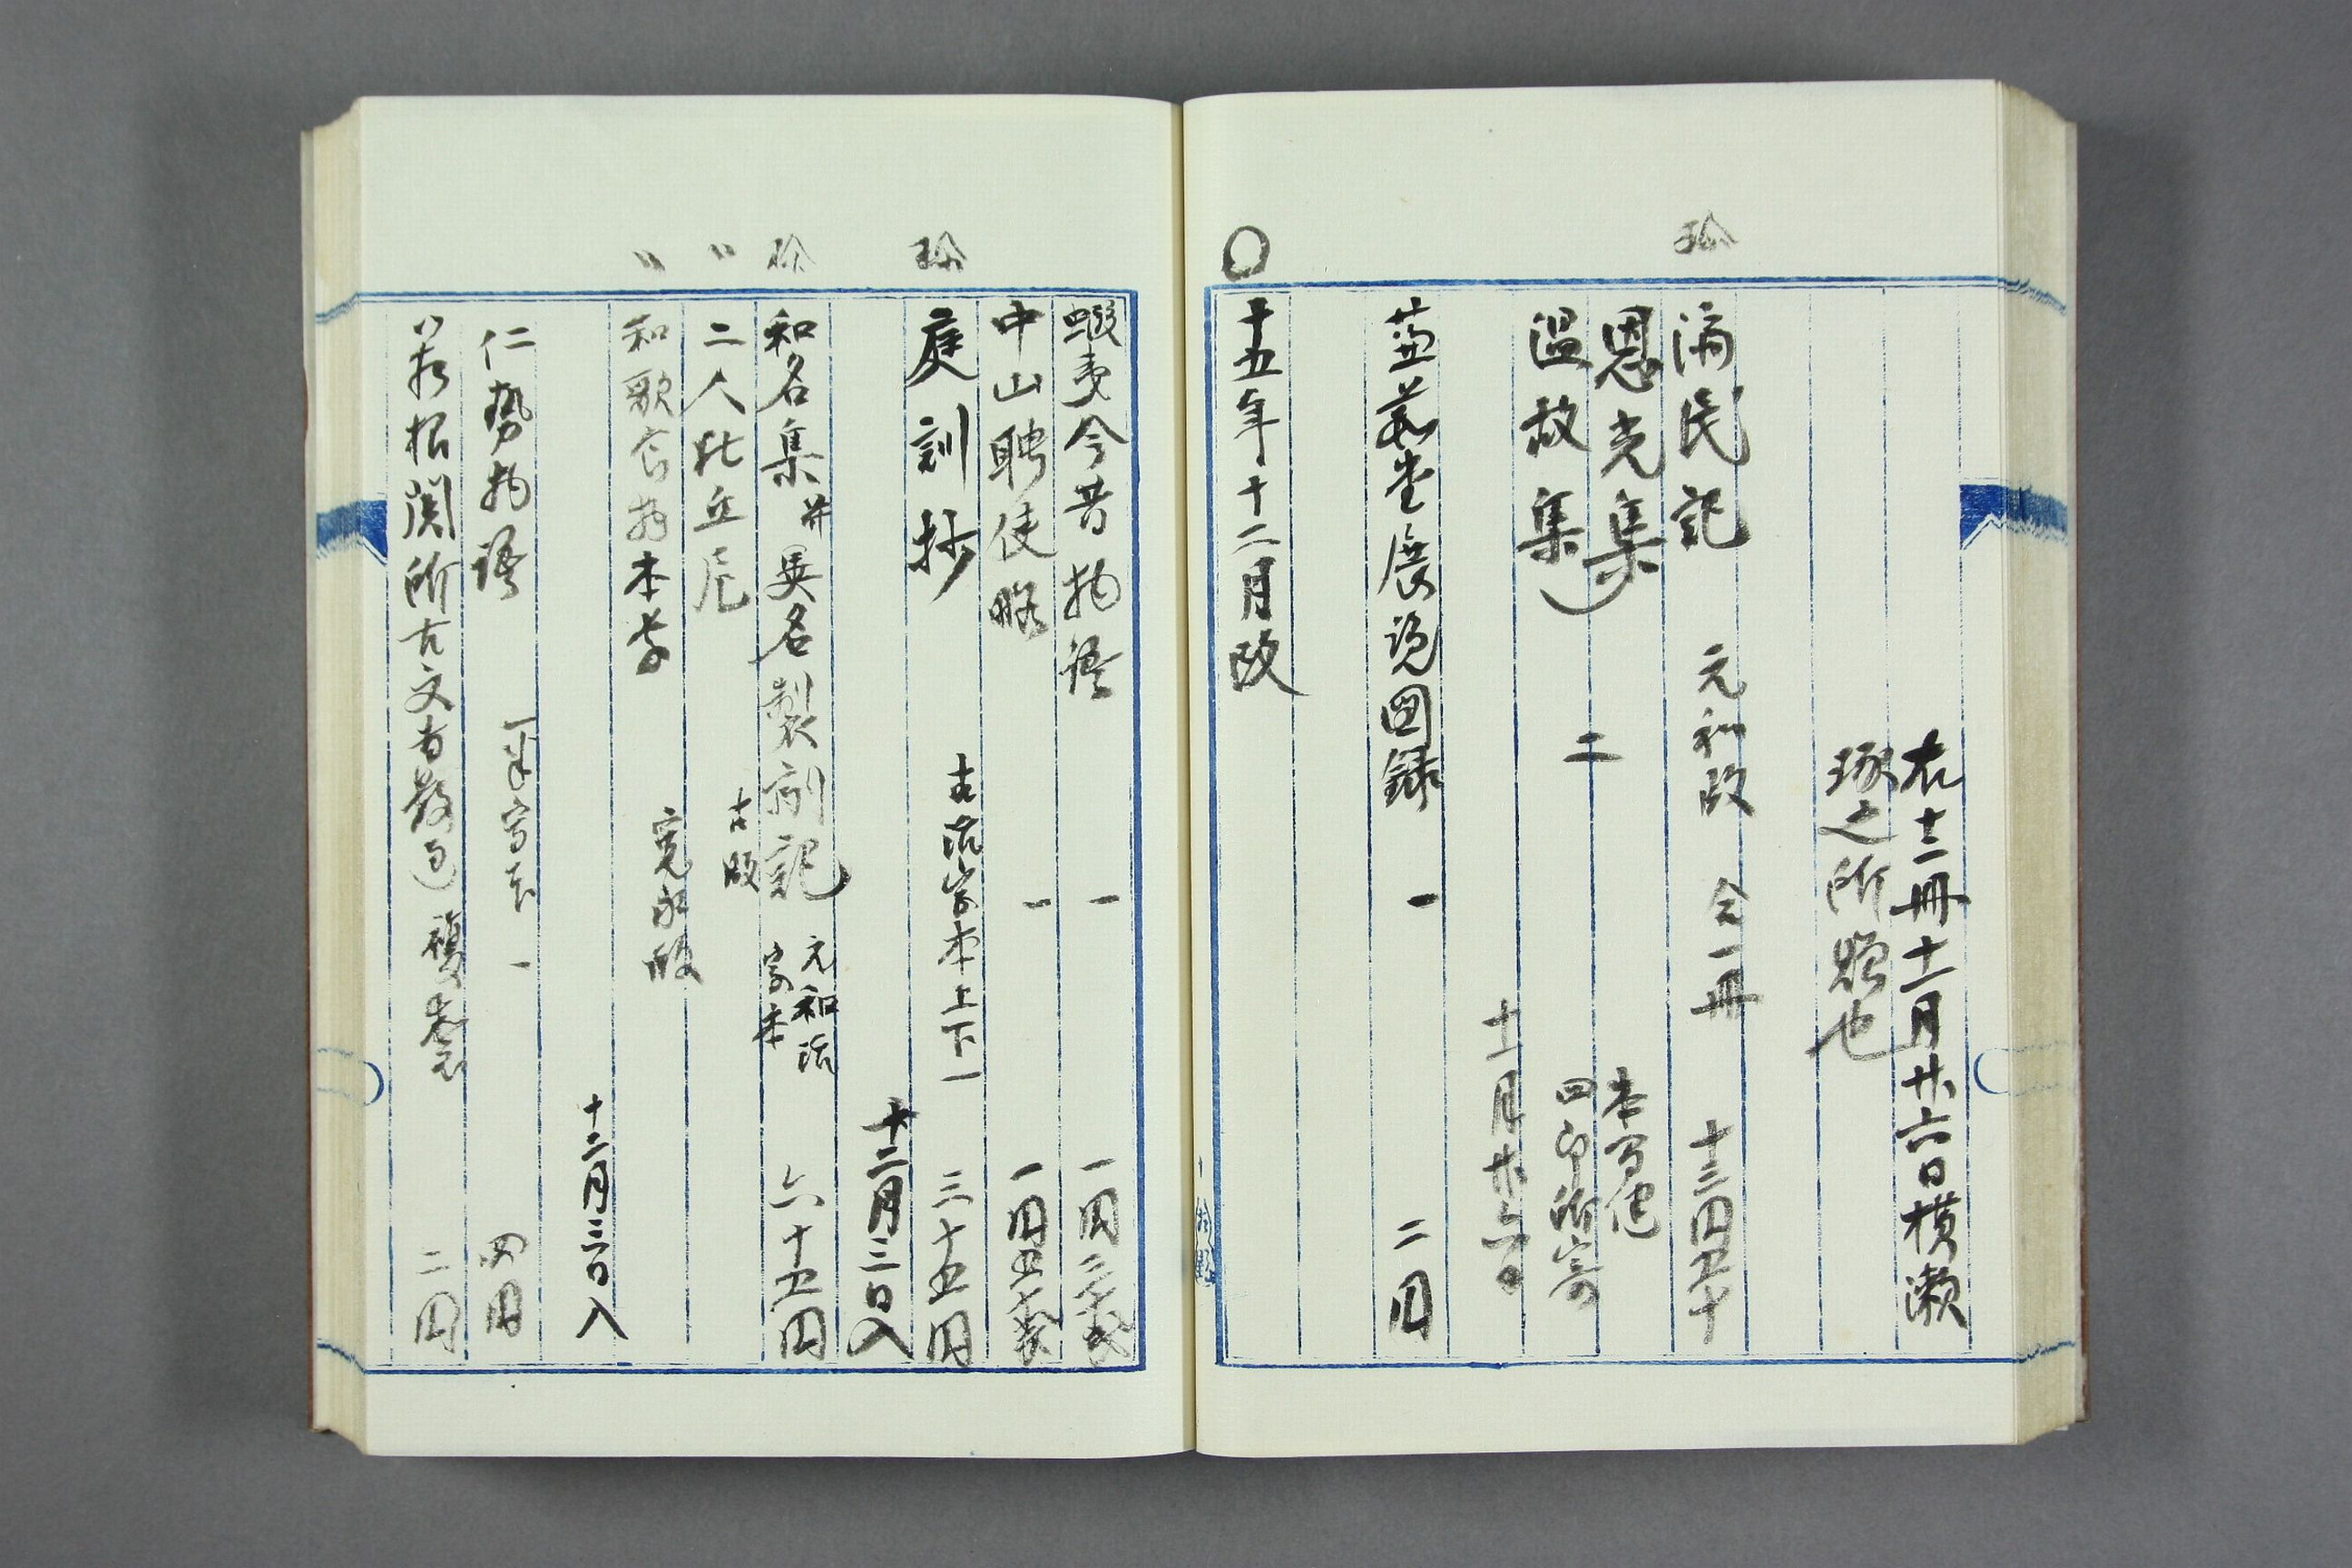 右十二冊十一月廿六日横瀬
琢之所贈也
珍
済民記 元和版 合一冊 十三円五十
恩光集
温故集 二
十一月廿六日
蒹葭堂展覧図録 一 二円
〇
十五年十二月改
蝦夷今昔物語 一 一円三十銭
中山聘使略 一 一円五十銭
珍
庭訓抄 古活字本上下一 三十五円
十二月三日入
珍
和名集并異名製剤記 元和活字本 六十五円
〃
二人比丘尼 古版
〃
和歌食物本草 寛永版
十二月三日入
仁勢物語 写本 一 四円
箱根関所古文書 二円